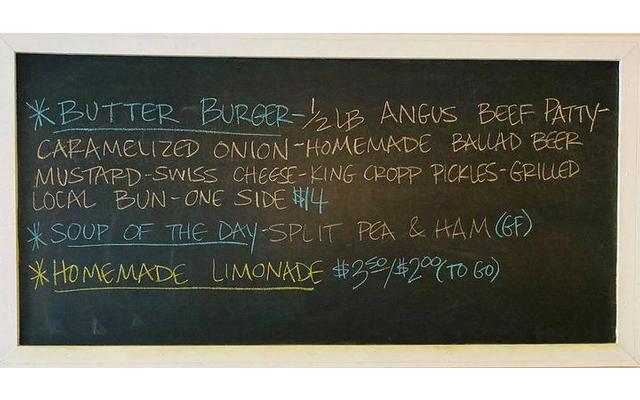 *BUTTER BURGER-1/2 LB ANGUS BEEF PATTY-
CARAMELIZED ONION-HOMEMADE BALLAD BEER
MUSTARD-SWISS CHEESE-KING CROPP PICKLES-GRILLED
LOCAL BUN-ONE SIDE $14
*SOUP OF THE DAY-SPLIT PEA & HAM (GF)
*HOMEMADE LIMONADE $3.50/$2.00 (TO GO)